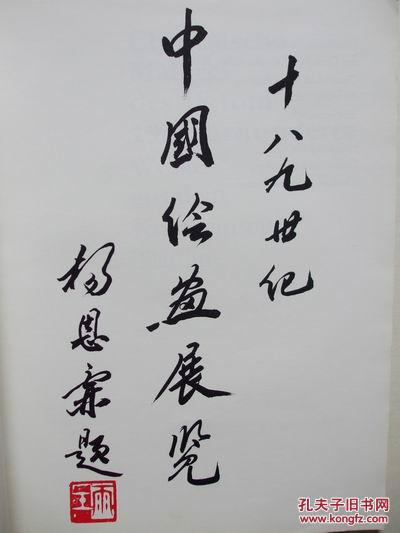 十八九世纪
中國绘画展览
杨恩霖题
孔夫子旧书网
www.kongfz.com